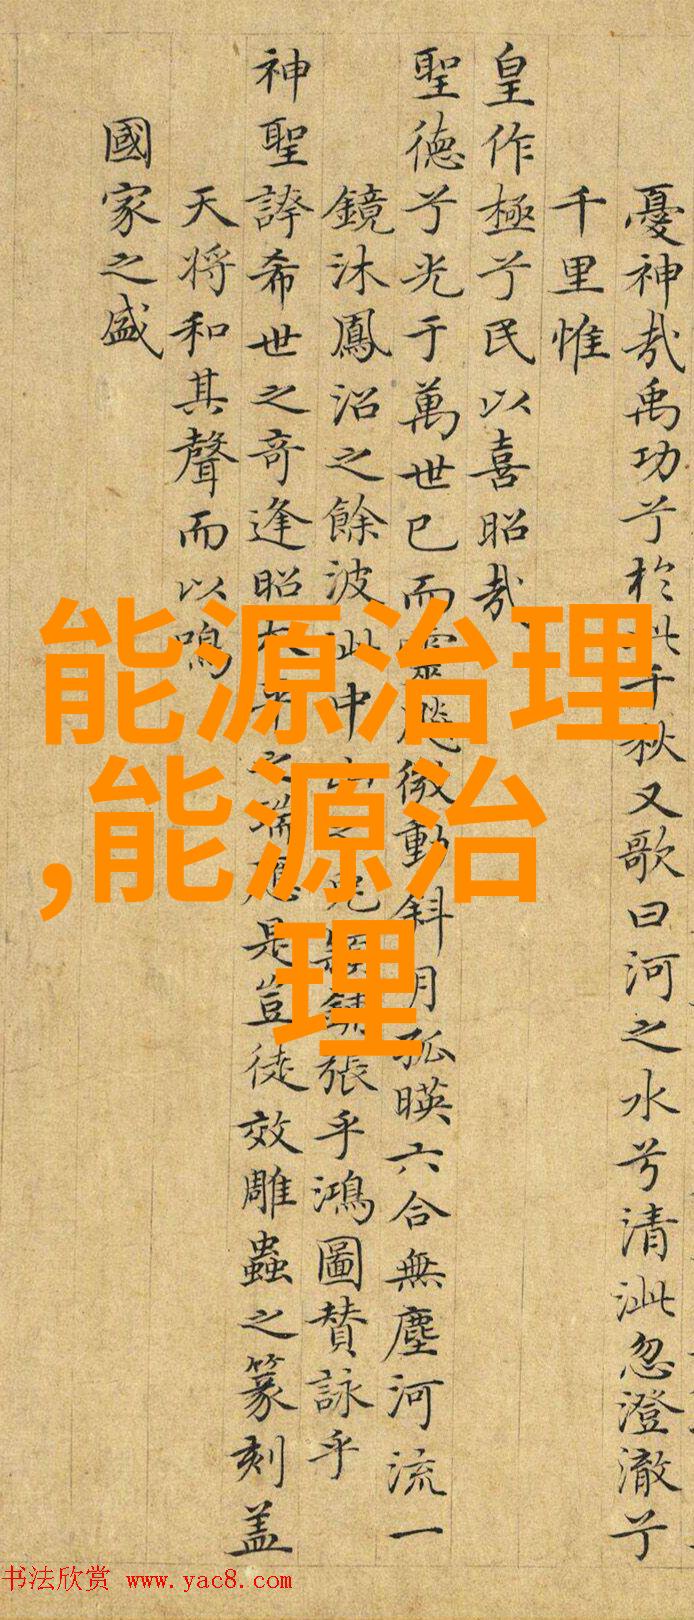 憂神哉禹功兮於此千秋又歌曰河之水兮清泚忽澄澈兮
千里惟
皇作極兮民以喜昭哉
聖德兮光于萬世已而靈飈微動斜月孤暎六合無塵河流一
鏡沐鳳沼之餘波泚中山之兔穎鋪張乎鴻圖賛詠乎
神聖誇希世之奇逢昭太平之瑞應是豈徒效雕蟲之篆刻盖
天将和其聲而以鳴
國家之盛
能源治理
,能源治
理
书法欣赏 www.yac8.com